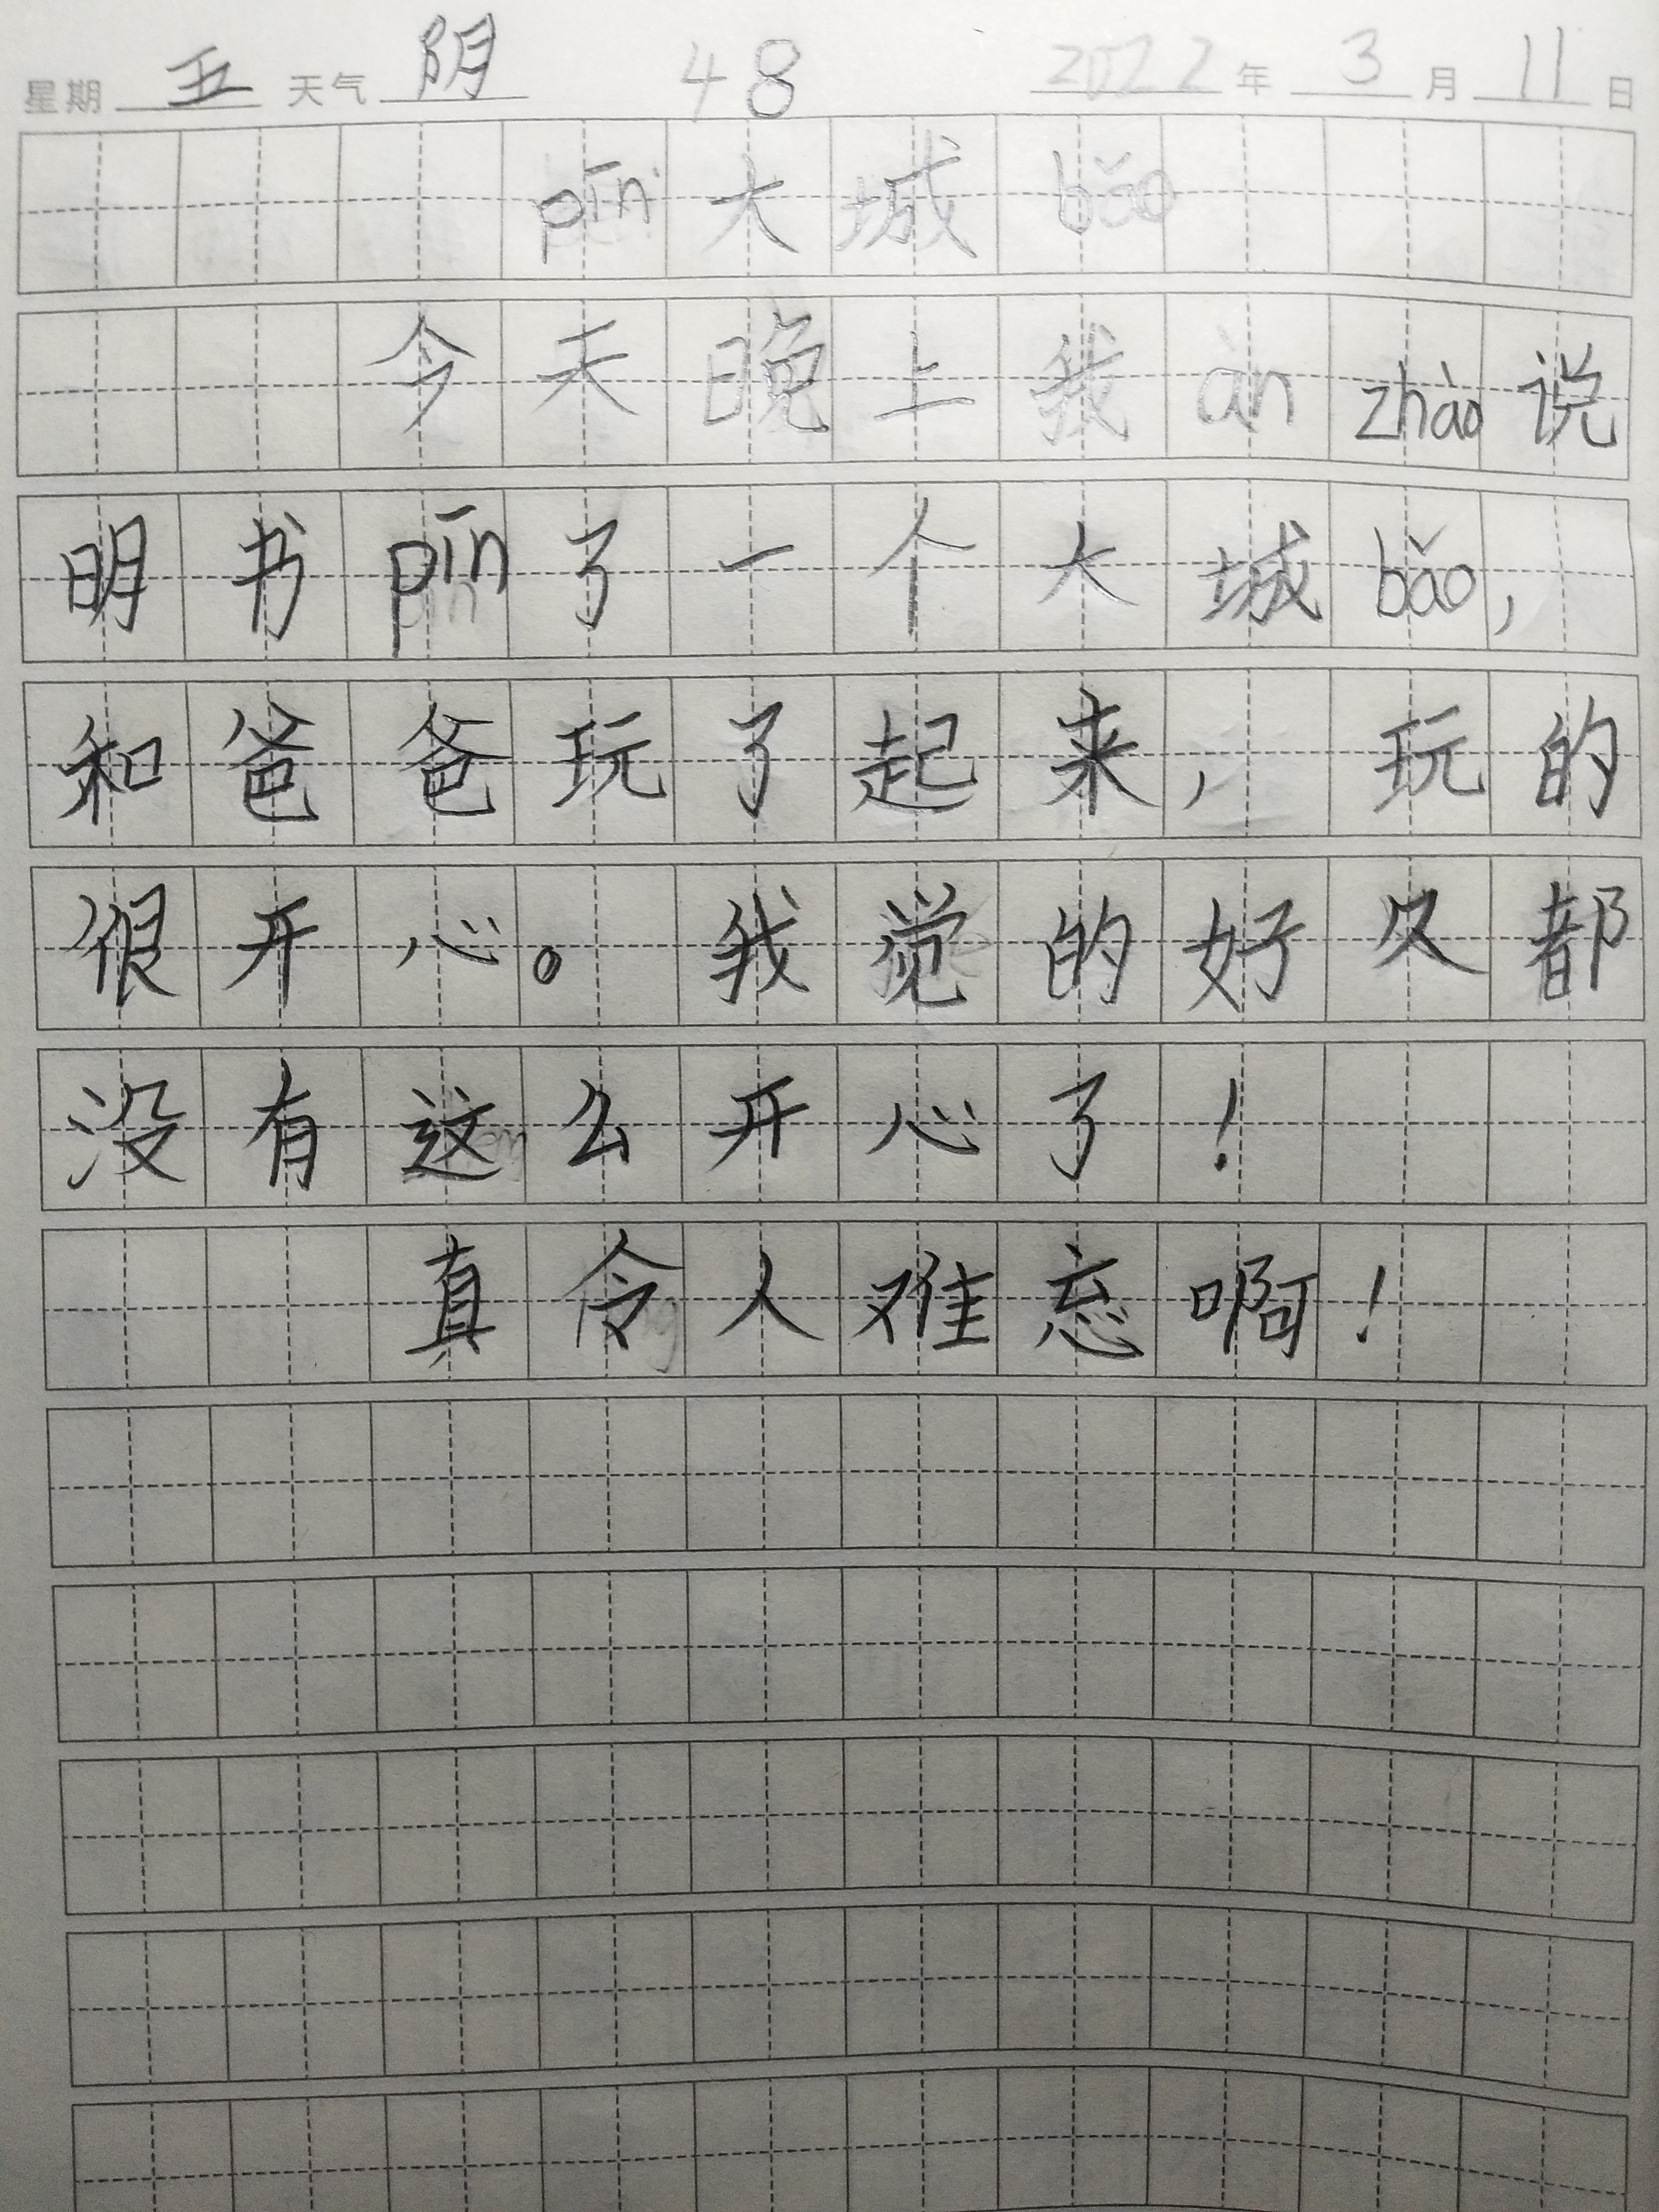 星期 五 天气 阴 48 2022 年 3 月 11 日
pīn 大城 bǎo
今天晚上我 àn zhào 说
明书 pīn 了一个大城 bǎo，
和爸爸玩了起来，玩的
很开心。我觉的好久都
没有这么开心了！
真令人难忘啊！